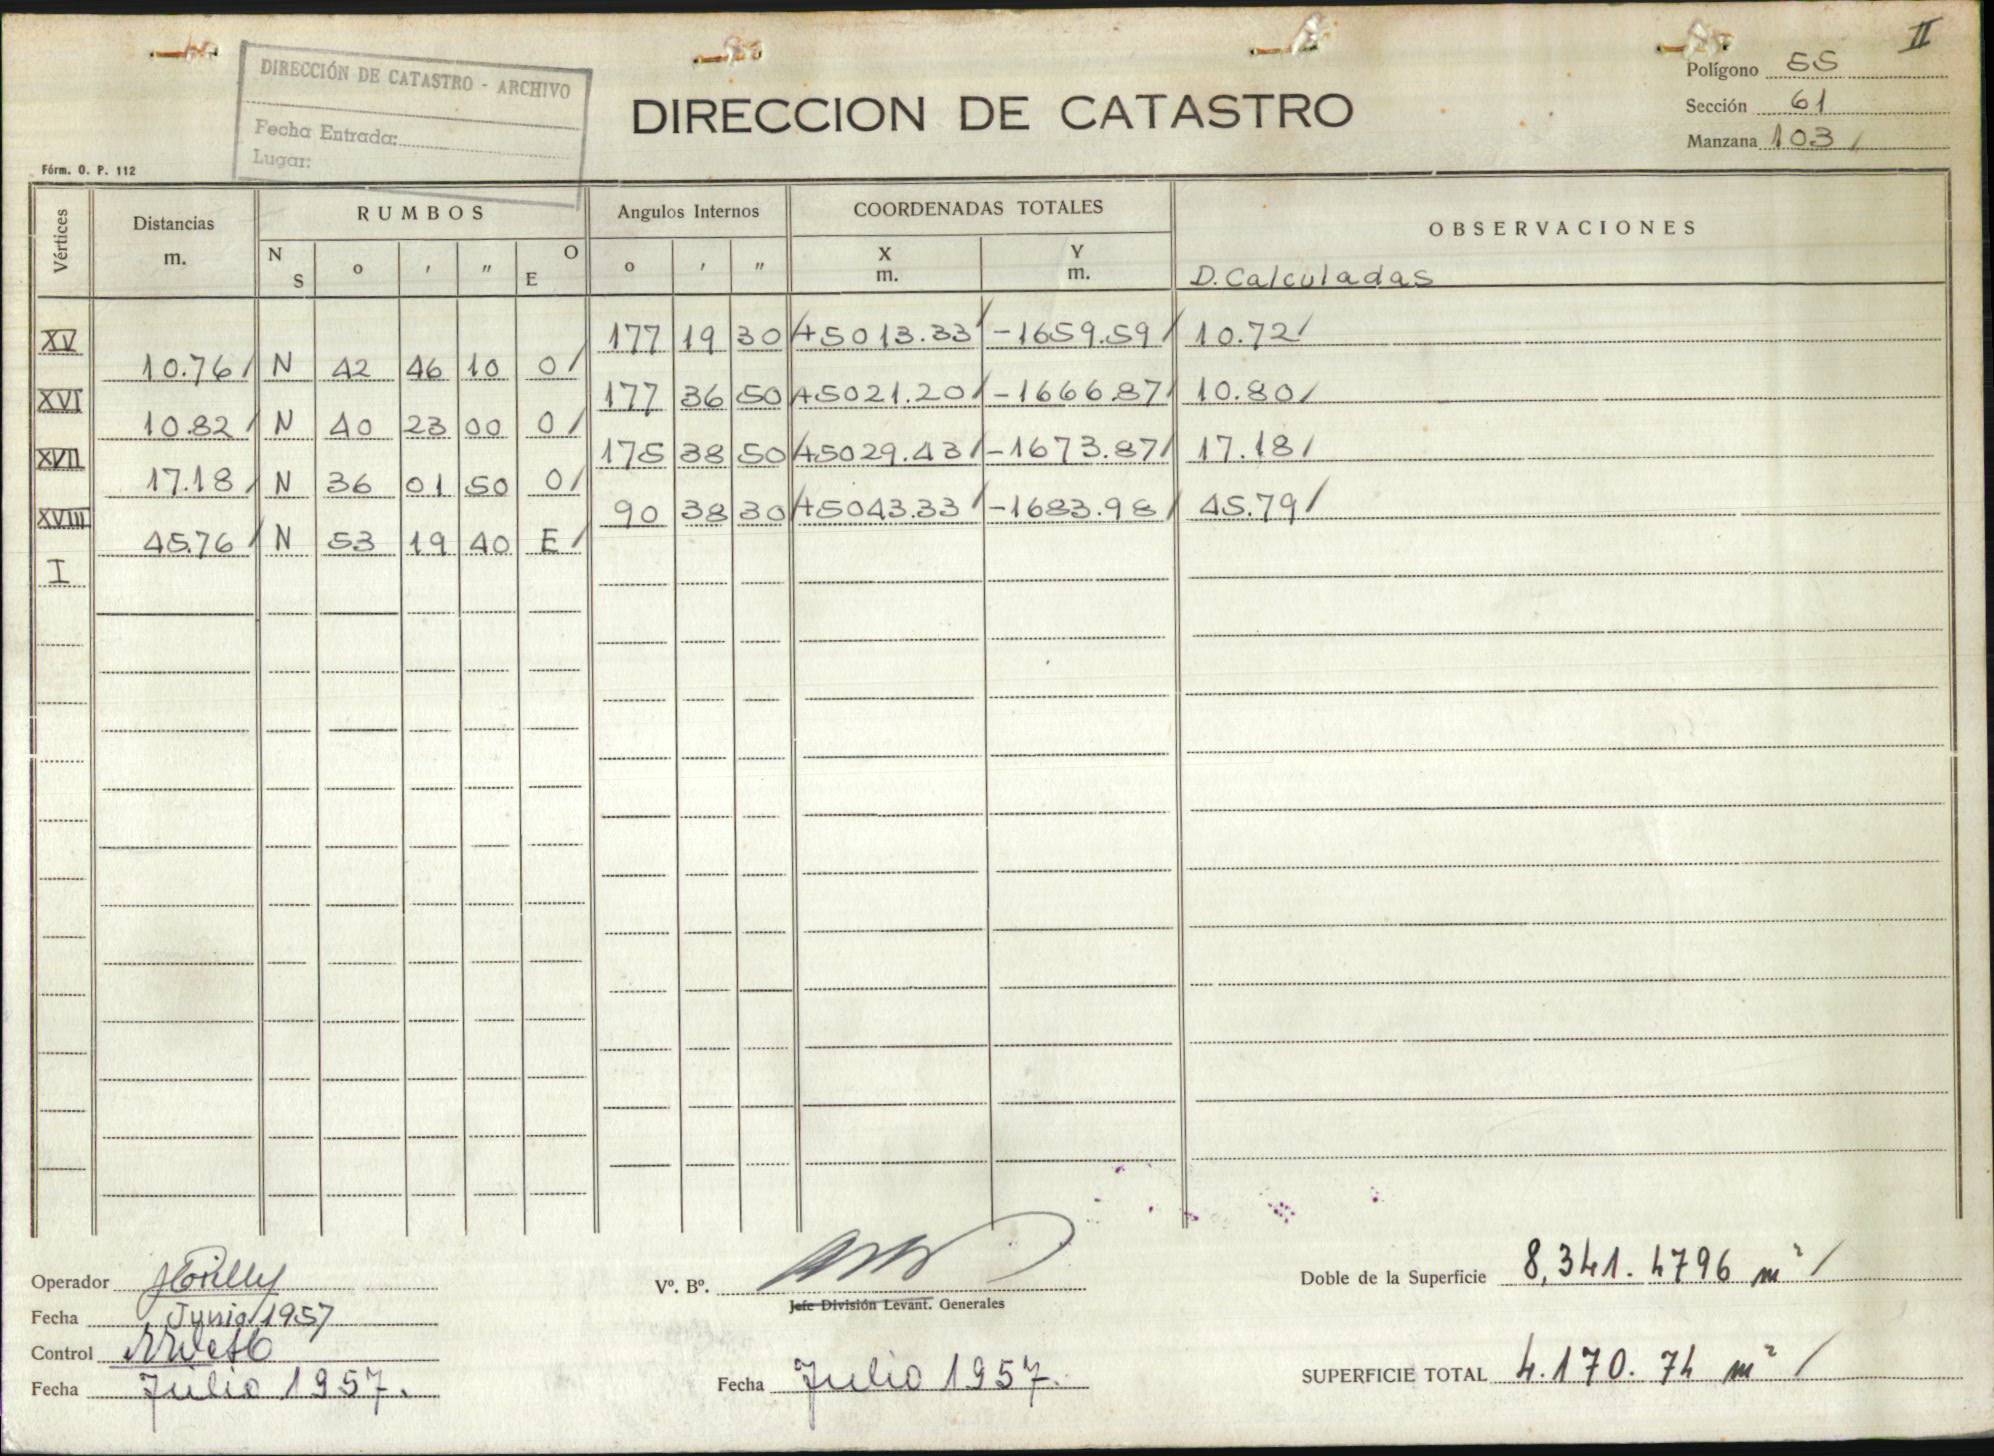 II
DIRECCIÓN DE CATASTRO - ARCHIVO
Fecha Entrada:
Lugar:
DIRECCION DE CATASTRO
Polígono 55
Sección 61
Manzana 103 /
Fórm. O. P. 112
Vértices Distancias m. RUMBOS Angulos Internos COORDENADAS TOTALES OBSERVACIONES
N S ° ' " O E ° ' " X m. Y m. D. Calculadas
XV 177 19 30 +5013.33/ -1659.59/ 10.72/
10.76/ N 42 46 10 O/
XVI 177 36 50 +5021.20/ -1666.87/ 10.80/
10.82/ N 40 23 00 O/
XVII 175 38 50 +5029.43/ -1673.87/ 17.18/
17.18/ N 36 01 50 O/
XVIII 90 38 30 +5043.33/ -1683.98/ 45.79/
45.76/ N 53 19 40 E/
I
Operador
Fecha Junio/1957
Control
Fecha Julio 1957.
Vº. Bº.
Jefe División Levant. Generales
Fecha Julio 1957.
Doble de la Superficie 8,341.4796 m² /
SUPERFICIE TOTAL 4.170.74 m² /